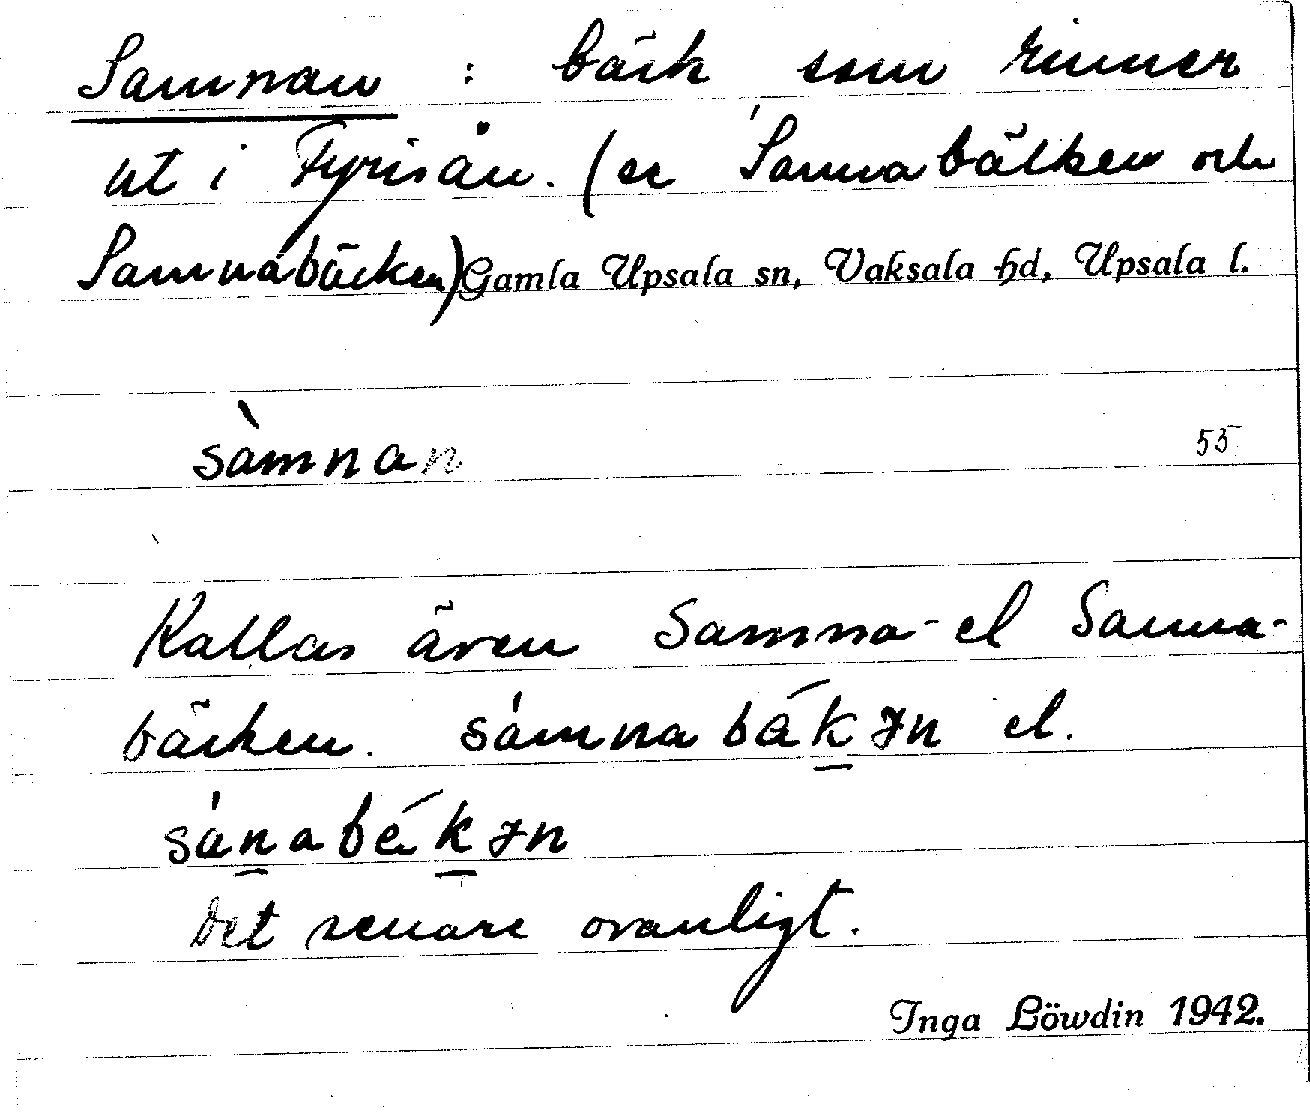 Samnan : bäck som rinner
ut i Fyrisån. (se Sannabäcken och
Samnabäcken) Gamla Upsala sn, Vaksala hd, Upsala l.
sàmnan 55
Kallas även Samna- el Sanna-
bäcken. sámnabákɜn el.
sánabákɜn
Det senare ovanligt.
Inga Löwdin 1942.